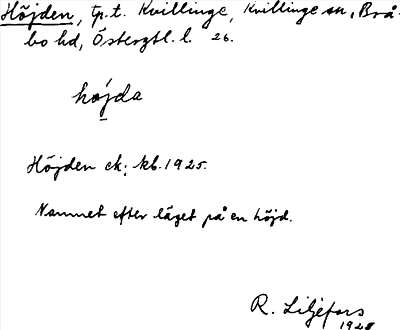 Höjden, tp.t. Kvillinge, Kvillinge sn, Brå-
bo hd, Östergtl. l. 26.
höjda
Höjden ek; kb. 1925.
Namnet efter läget på en höjd.
R. Liljefors
1928